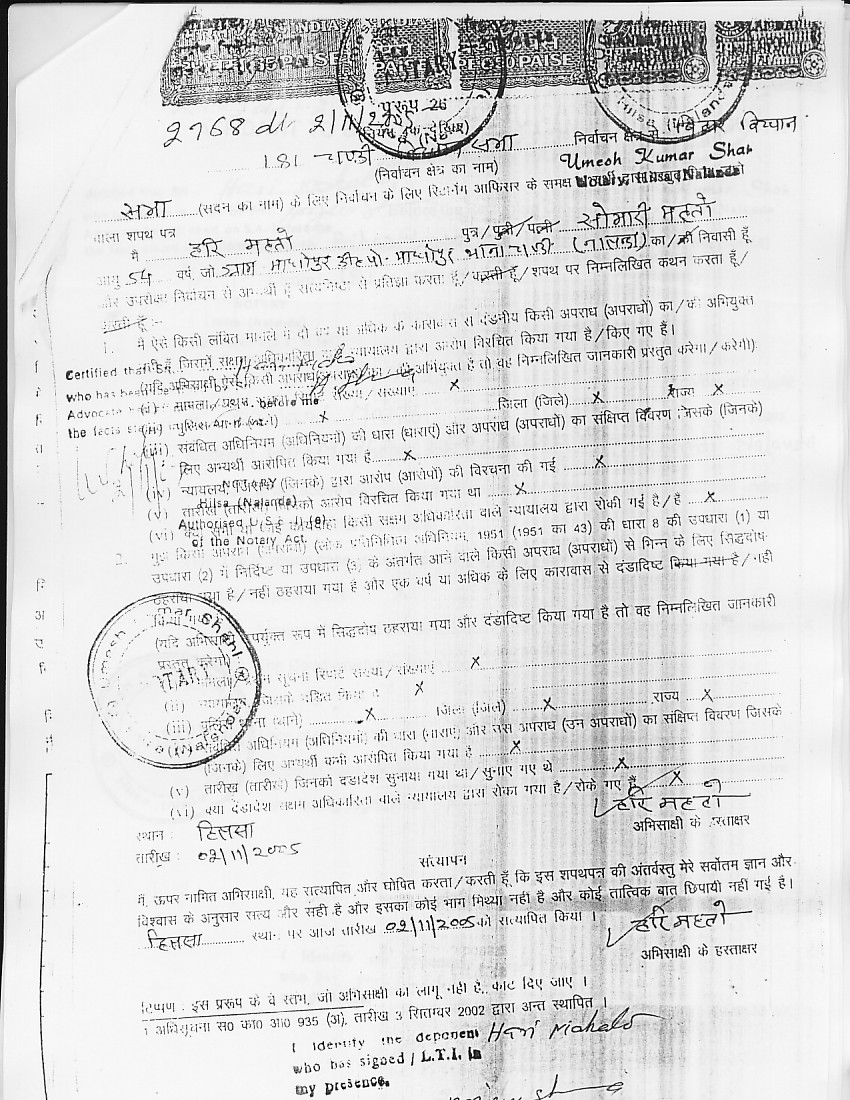 INDIA
35 PAISE
PAISE
50 PAISE
NOTARY
Hilsa (Nalanda)
प्ररूप 26
2768 dt 2/11/2005
181 चण्डी विधान सभा निर्वाचन क्षेत्र से बिहार विधान
(निर्वाचन क्षेत्र का नाम)
Umesh Kumar Shar
सभा (सदन का नाम) के लिए निर्वाचन के लिए रिटर्निंग आफिसर के समक्ष
वाला शपथ पत्र
मैं हरि महतो पुत्र/पुत्री/पत्नी सोमारी महतो
आयु 54 वर्ष, जो ग्राम माधोपुर डी०पो० माधोपुर थाना चण्डी (नालन्दा) का/की निवासी हूँ
और उपरोक्त निर्वाचन से अभ्यर्थी हूँ सत्यनिष्ठा से प्रतिज्ञा करता हूँ/करती हूँ/शपथ पर निम्नलिखित कथन करता हूँ/
करती हूँ :-
1. मैं ऐसे किसी लंबित मामले में दो वर्ष या अधिक के कारावास से दंडनीय किसी अपराध (अपराधों) का/की अभियुक्त
न्यायालय द्वारा आरोप विरचित किया गया है/किए गए हैं।
Certified that
(यदि अभिसाक्षी ऐसे किसी अपराध अभियुक्त है तो वह निम्नलिखित जानकारी प्रस्तुत करेगा/करेगी):
who has been
Advocate before me
संख्या/संख्याएं X
the facts
X जिला (जिले) X राज्य X
(iii) संबंधित अधिनियम (अधिनियमों) की धारा (धाराएं) और अपराध (अपराधों) का संक्षिप्त विवरण जिसके (जिनके)
लिए अभ्यर्थी आरोपित किया गया है X
(iv) न्यायालय, (जिनके) द्वारा आरोप (आरोपों) की विरचना की गई X
NOTARY
(v) तारीख (तारीखें) आरोप विरचित किया गया था X
Hilsa (Nalanda)
(vi) किसी सक्षम अधिकारिता वाले न्यायालय द्वारा रोकी गई है/हैं X
Authorised U.S.
of the Notary Act.
2. मुझे किसी अपराध (अपराधों) (लोक प्रतिनिधित्व अधिनियम, 1951 (1951 का 43) की धारा 8 की उपधारा (1) या
उपधारा (2) में निर्दिष्ट या उपधारा (3) के अंतर्गत आने वाले किसी अपराध (अपराधों) से भिन्न के लिए सिद्धदोष
ठहराया गया है/नहीं ठहराया गया है और एक वर्ष या अधिक के लिए कारावास से दंडादिष्ट किया गया है/नहीं
(यदि अभिसाक्षी उपर्युक्त रूप में सिद्धदोष ठहराया गया और दंडादिष्ट किया गया है तो वह निम्नलिखित जानकारी
प्रस्तुत करेगा)
सूचना रिपोर्ट संख्या/संख्याएं X
(ii) X
(iii) (थाने) X जिला (जिले) X राज्य X
अधिनियम (अधिनियमों) की धारा (धाराएं) और उस अपराध (उन अपराधों) का संक्षिप्त विवरण जिसके
(जिनके) लिए अभ्यर्थी कभी आरोपित किया गया है X
(v) तारीख (तारीखें) जिनको दंडादेश सुनाया गया था/सुनाए गए थे X
(vi) क्या दंडादेश सक्षम अधिकारिता वाले न्यायालय द्वारा रोका गया है/रोके गए हैं X
हरि महतो
स्थान : हिलसा
अभिसाक्षी के हस्ताक्षर
तारीख : 02/11/2005
सत्यापन
मैं, ऊपर नामित अभिसाक्षी, यह सत्यापित और घोषित करता/करती हूँ, कि इस शपथपत्र की अंतर्वस्तु मेरे सर्वोतम ज्ञान और
विश्वास के अनुसार सत्य और सही है और इसका कोई भाग मिथ्या नहीं है और कोई तात्विक बात छिपायी नहीं गई है।
हिलसा स्थान पर आज तारीख 02/11/2005 को सत्यापित किया ।
हरि महतो
अभिसाक्षी के हस्ताक्षर
टिप्पण : इस प्ररूप के वे स्तंभ, जो अभिसाक्षी को लागू नहीं है, काट दिए जाए ।
1 अधिसूचना स० का० आ० 935 (अ), तारीख 3 सितम्बर 2002 द्वारा अन्त स्थापित ।
I identify the deponent Hari Mahato
who has signed / L.T.I. in
my presence.